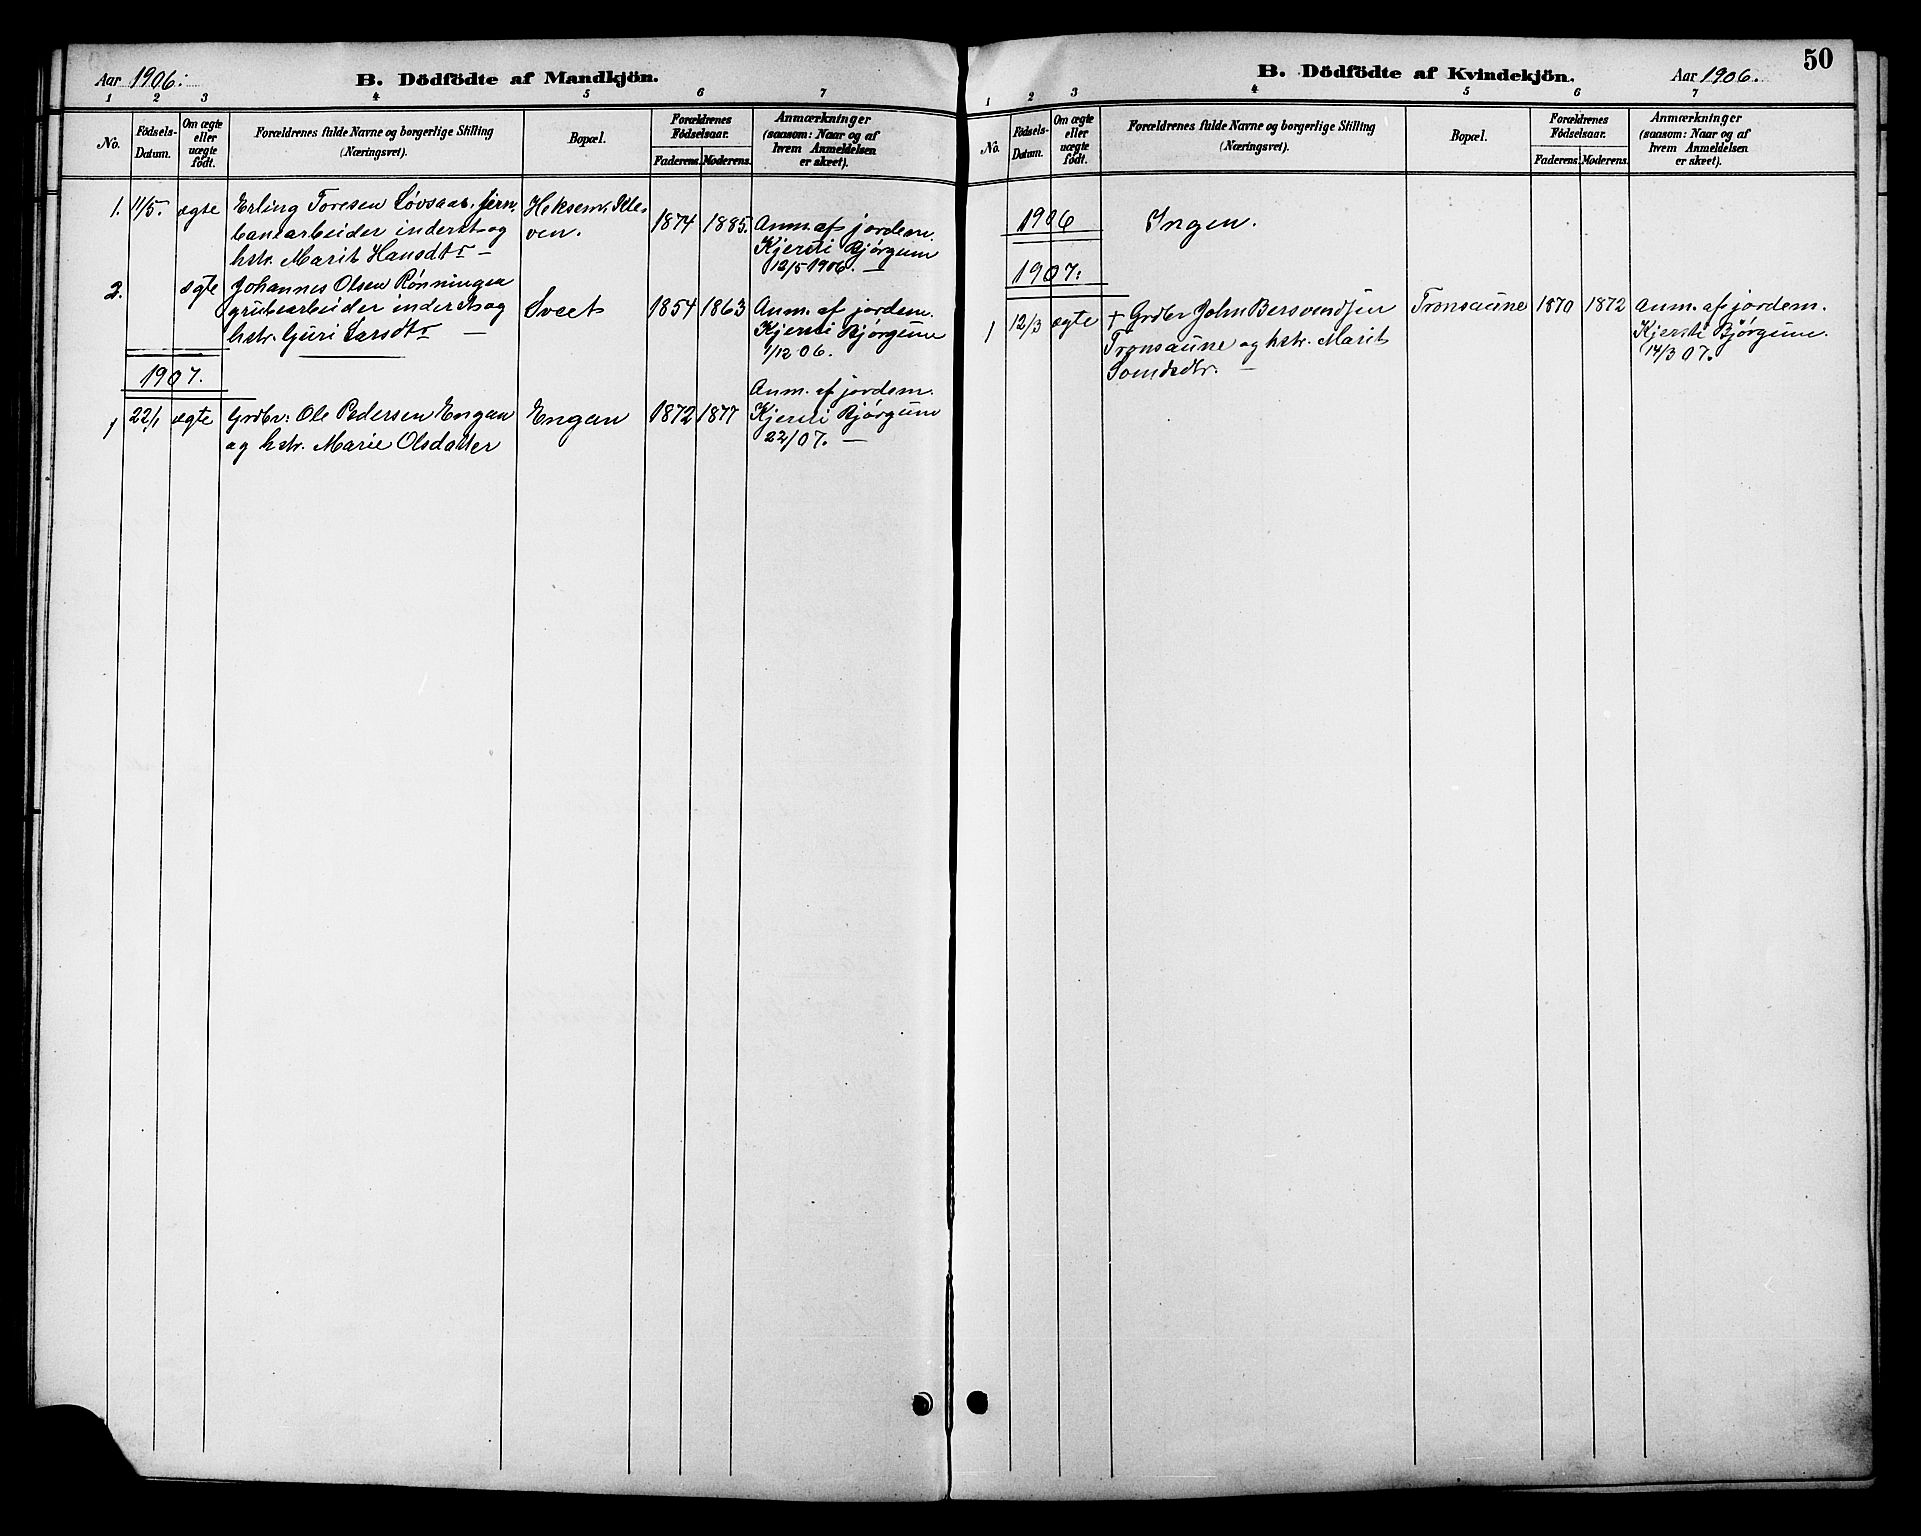 Aar 1906.
B. Dödfödte af Mandkjön.
1 2 3 4 5 6 7
No.
Födsels-
Datum.
Om ægte
eller
uægte
födt.
Forældrenes fulde Navne og borgerlige Stilling
(Næringsvei).
Bopæl.
Forældrenes
Födselsaar.
Faderens. Moderens.
Anmærkninger
(saasom: Naar og af
hvem Anmeldelsen
er skeet).
1. 11/5. ægte Erling Toresen Løvsaas, jern-
banearbeider inderst og
hstr. Marit Hansdtr —
ven.
1874 1885.
Anm. af jordem.
Kjersti Bjørgum
12/5 1906. —
2. ægte Johannes Olsen Rønningen
grubearbeider inderst og
hstr. Guri Larsdtr —
Sveet
1854 1863
Anm. af jordem.
Kjersti Bjørgum
1/12 06.
1907.
1 22/1 ægte Grdbr: Ole Pedersen Engan
og hstr. Marie Olsdatter
Engan
1872 1877
Anm. af jordem.
Kjersti Bjørgum
22/07. —
50
B. Dödfödte af Kvindekjön.
Aar 1906.
1 2 3 4 5 6 7
No.
Födsels-
Datum.
Om ægte
eller
uægte
födt.
Forældrenes fulde Navne og borgerlige Stilling
(Næringsvei).
Bopæl.
Forældrenes
Födselsaar.
Faderens. Moderens.
Anmærkninger
(saasom: Naar og af
hvem Anmeldelsen
er skeet).
1906 Ingen.
1907:
1 12/3 ægte + Grdbr John Bersvendsen
Trønsaune og hstr. Marit
—
Trønsaune
1870 1872
Anm. af jordem.
Kjersti Bjørgum.
14/3 07.